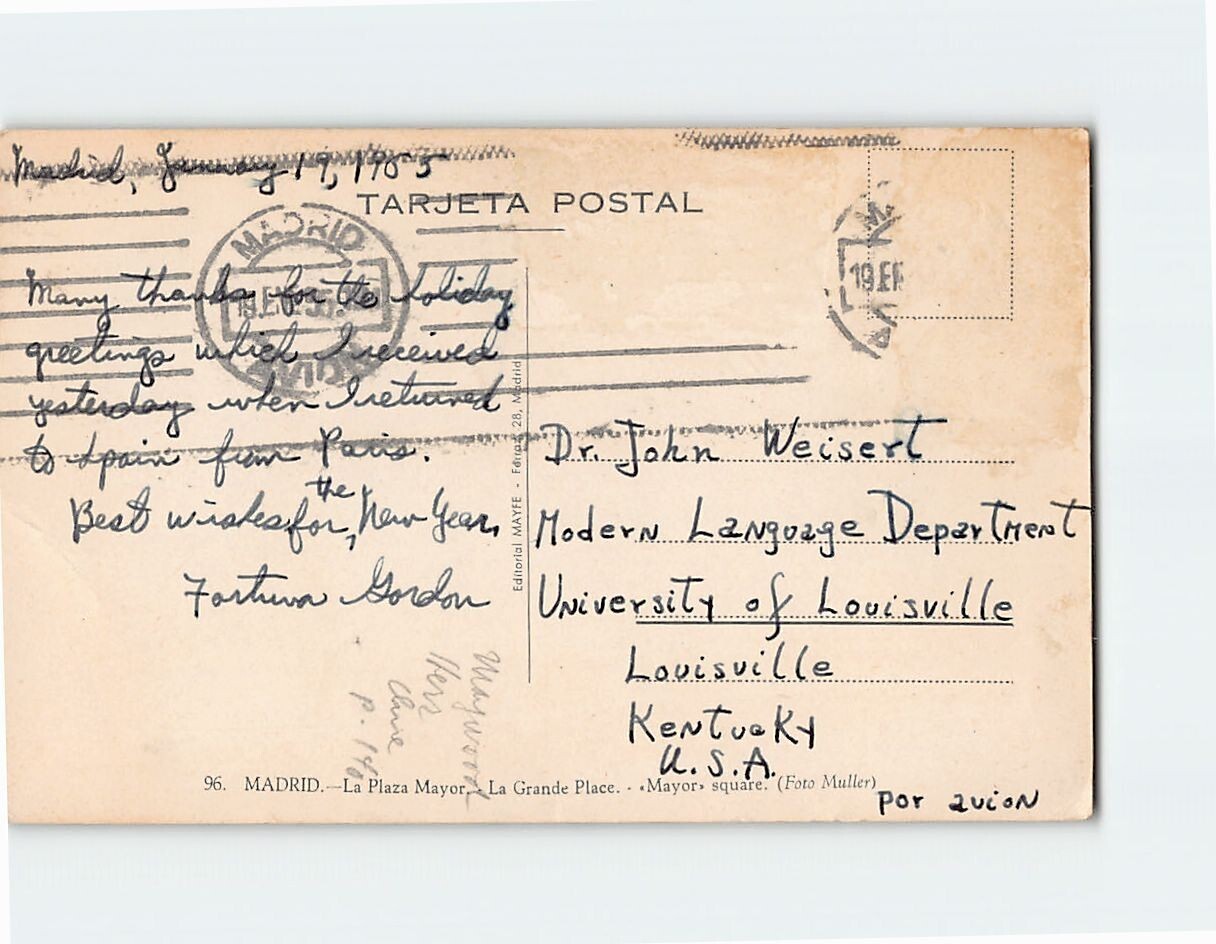 Madrid, January 19, 1955
TARJETA POSTAL
MADRID
19.ENE.55
19.EN
Many thanks for the holiday
greetings which I received
yesterday when I returned
to Spain from Paris.
Best wishes for the New Year,
Fortuna Gordon
Maywood
Herr
p. 140
Editorial MAYFE - Ferraz, 28, Madrid
Dr. John Weisert
Modern Language Department
University of Louisville
Louisville
Kentucky
U.S.A.
96. MADRID.—La Plaza Mayor. - La Grande Place. - «Mayor» square. (Foto Muller)
por avion